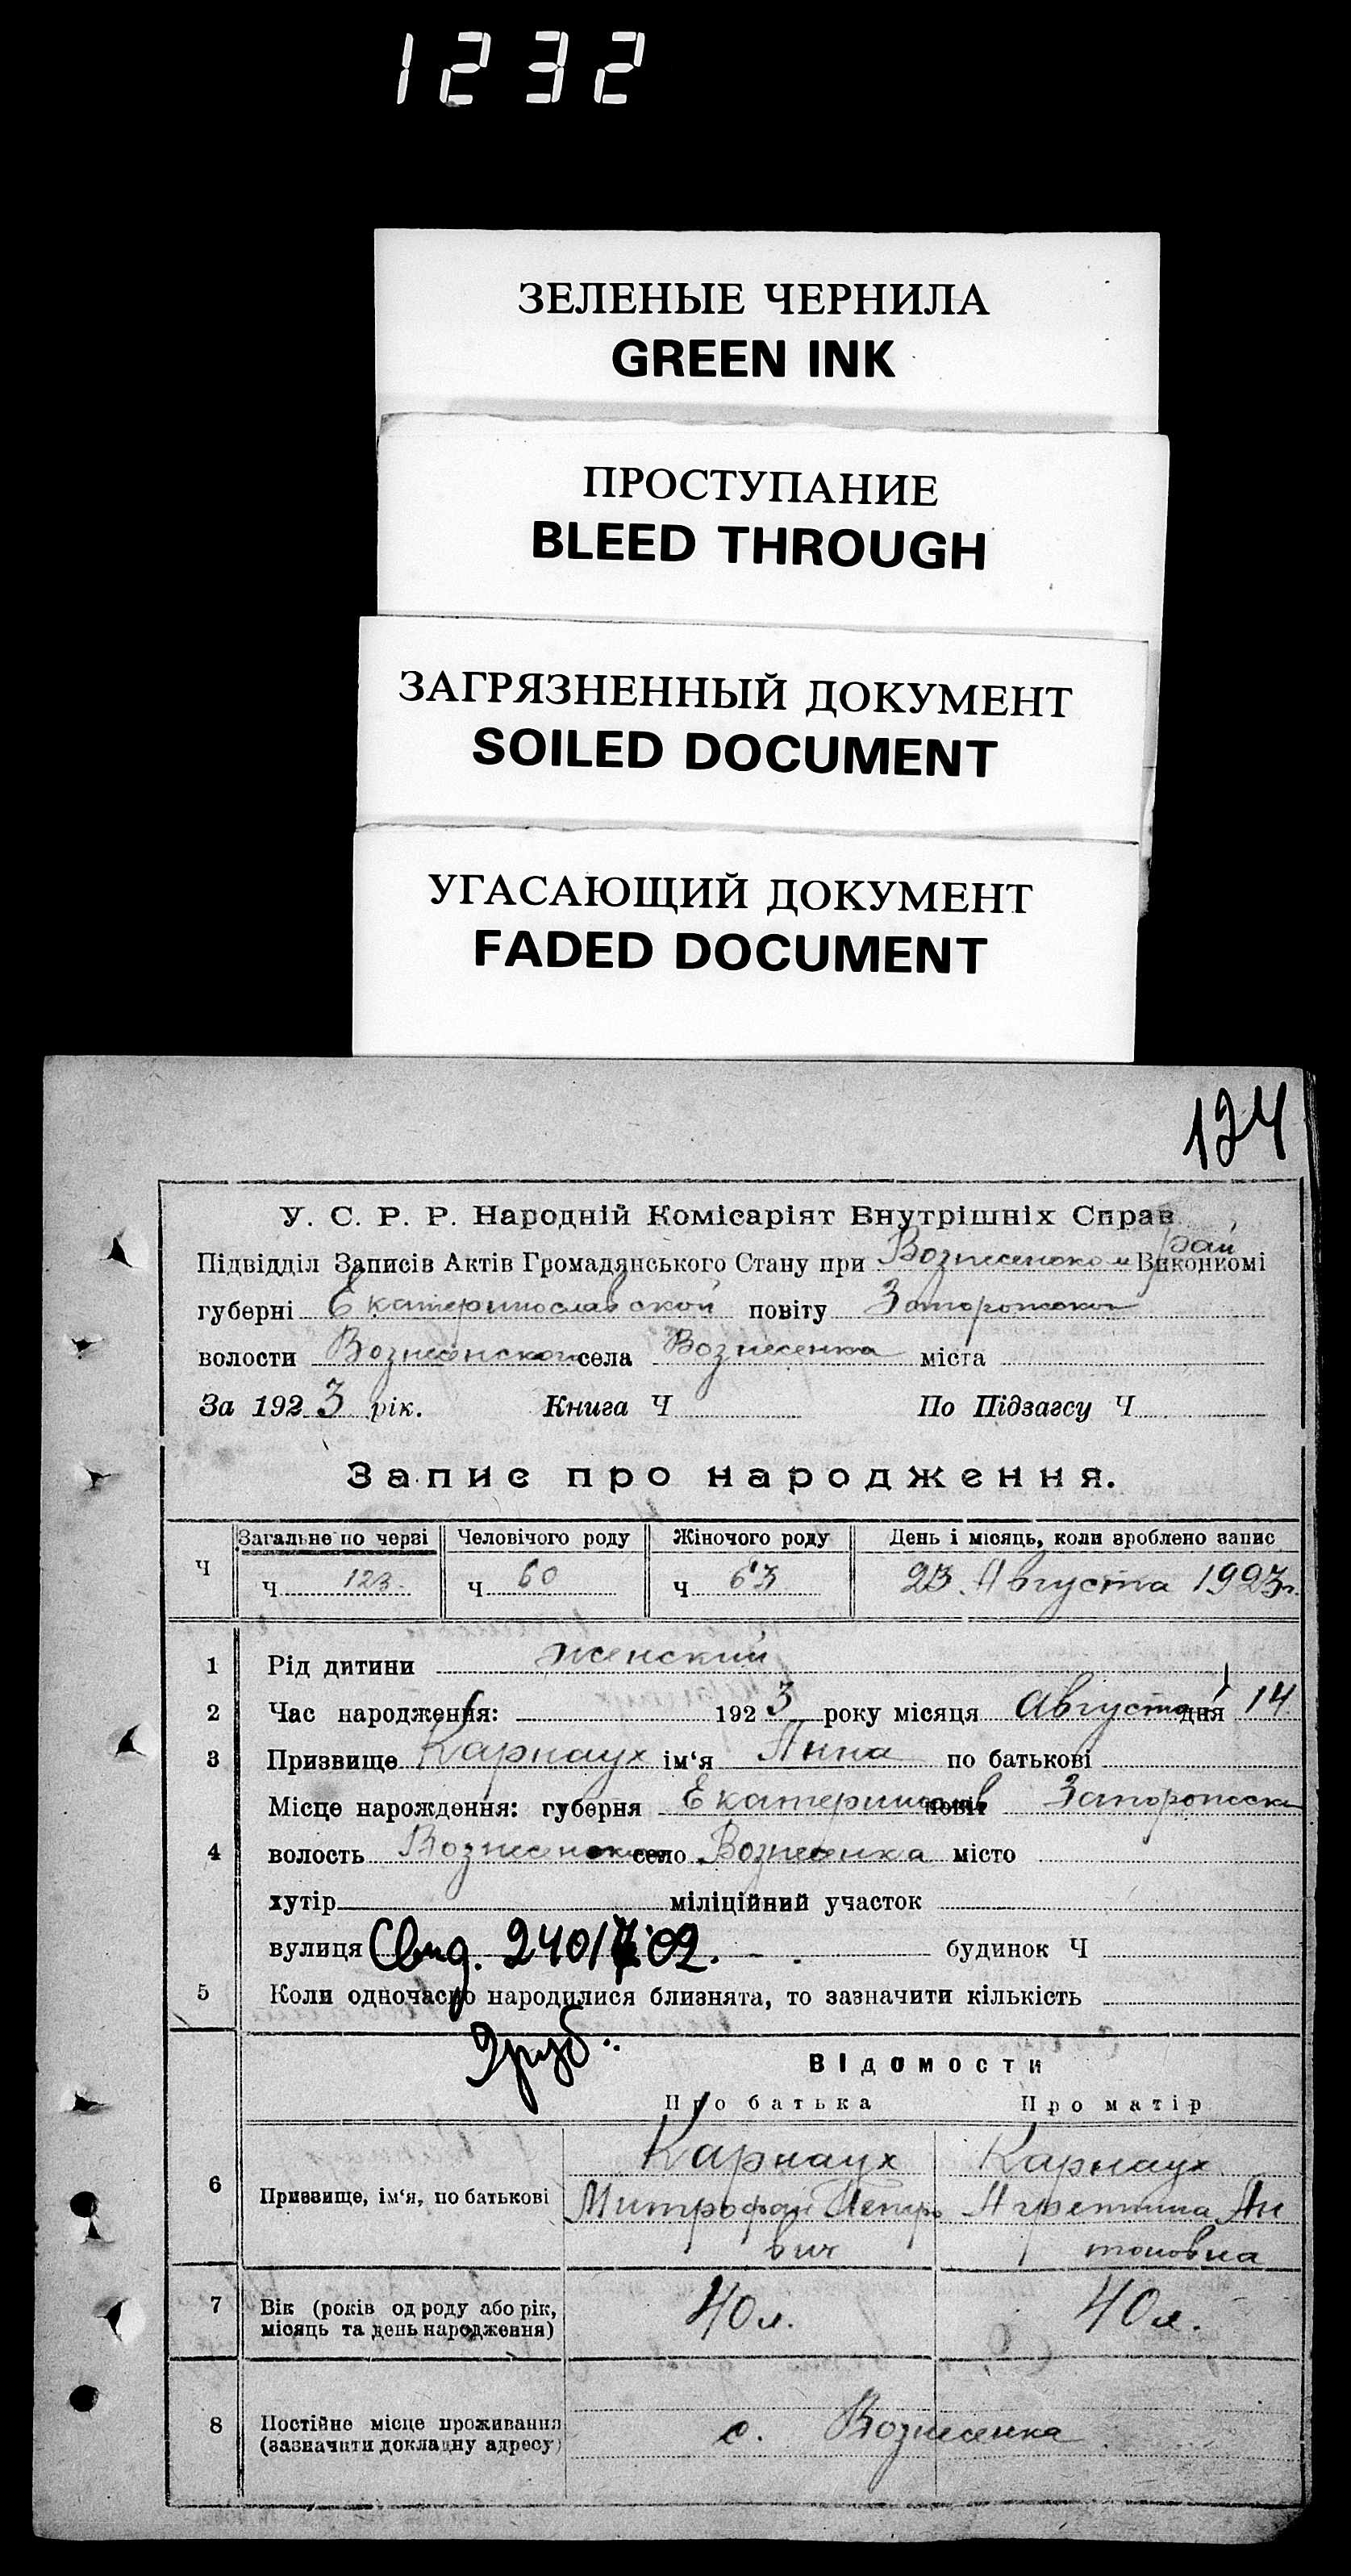 1232
ЗЕЛЕНЫЕ ЧЕРНИЛА
GREEN INK
ПРОСТУПАНИЕ
BLEED THROUGH
ЗАГРЯЗНЕННЫЙ ДОКУМЕНТ
SOILED DOCUMENT
УГАСАЮЩИЙ ДОКУМЕНТ
FADED DOCUMENT
124
У. С. Р. Р. Народній Комісаріят Внутрішніх Справ
Підвідділ Записів Актів Громадянського Стану при Вознесенском Рай Виконкомі
губерні Екатеринославской повіту Запорожской
волости Вознесенской села Вознесенка міста
За 1923 рік. Книга Ч По Підзагсу Ч
Запис про народження.
Ч Загальне по черзі Человічого роду Жіночого роду День і місяць, коли зроблено запис
Ч 123. Ч 60 Ч 63 23 Августа 1923 г.
1 Рід дитини женский
2 Час народження: 1923 року місяця Августа дня 14
3 Призвище Карнаух ім'я Анна по батькові
Місце нарождення: губерня Екатеринослав повіт Запорожск
4 волость Вознесенская село Вознесенка місто
хутір міліційний участок
вулиця Свид. будинок Ч
5 Коли одночасно народилися близнята, то зазначити кількість
Відомости
Про батька Про матір
6 Призвище, ім'я, по батькові
Карнаух Карнаух
Митрофан Петро Агрепина Ан
вич тоновна
7 Вік (років од роду або рік, місяць та день народження) 40 л. 40 л.
8 Постійне місце проживання (зазначити докладну адресу) с. Вознесенка